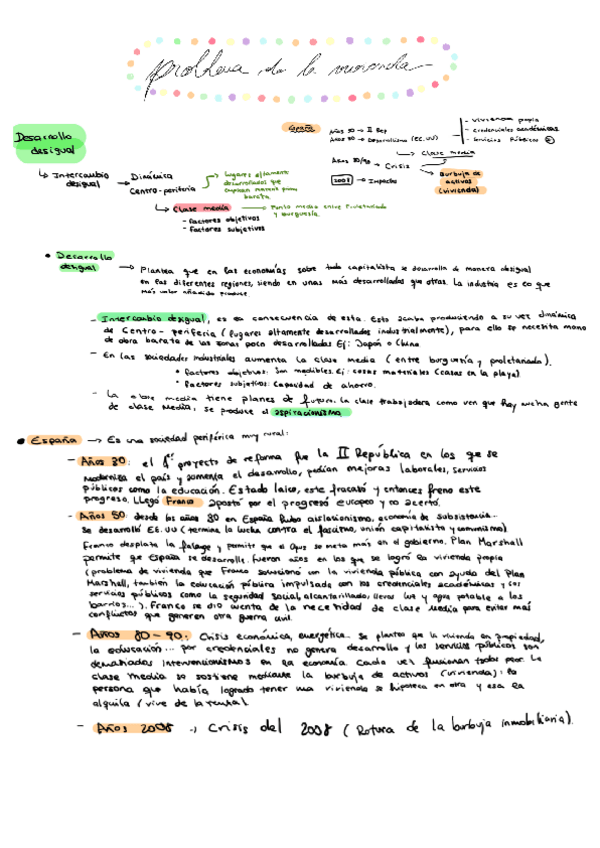 Problema de la vivienda
Desarrollo desigual
↳ Intercambio desigual → Dinámica Centro-periferia
Lugares altamente desarrollados que emplean mano de obra barata
↳ Clase media → Punto medio entre Proletariado y burguesía.
- Factores objetivos
- Factores subjetivos
España
Años 30 → II Rep
Años 50 → Desarrollismo (EE.UU)
- Vivienda propia
- Credenciales académicas
- Servicios Públicos
↳ Clase media
Años 80/90 → Crisis
↳ Burbuja de activos (vivienda)
2008 → Impacto
• Desarrollo desigual → Plantea que en las economías sobre todo capitalista se desarrolla de manera desigual
en las diferentes regiones, siendo en unas más desarrolladas que otras. La industria es lo que
más valor añadido produce.
- Intercambio desigual, es la consecuencia de esta. Esto acaba produciendo a su vez dinámica
de Centro - periferia (lugares altamente desarrollados industrialmente), para ello se necesita mano
de obra barata de las zonas poco desarrolladas Ej: Japón o China
- En las sociedades industriales aumenta la clase media (entre burguesía y proletariado).
• Factores objetivos: Son medibles. Ej: cosas materiales (casas en la playa)
• Factores subjetivos: Capacidad de ahorro.
- La clase media tiene planes de futuro. La clase trabajadora como ven que hay mucha gente
de clase media, se produce el aspiracionismo
• España → Es una sociedad periférica muy rural:
- Años 30: el 1er proyecto de reforma fue la II República en los que se
moderniza el país y fomenta el desarrollo, pedían mejoras laborales, servicios
públicos como la educación. Estado laico, este fracasó y entonces freno este
progreso. Llegó Franco apostó por el progreso europeo y no acertó.
- Años 50: desde los años 30 en España hubo aislacionismo, economía de subsistencia...
se desarrolló EE.UU (termina la lucha contra el fascismo, unión capitalista y comunismo)
Franco desplaza la falange y permite que el Opus se meta más en el gobierno. Plan Marshall
permite que España se desarrolle. Fueron años en los que se logró la vivienda propia
(problema de vivienda que Franco solucionó con la vivienda pública con ayuda del Plan
Marshall, también la educación pública impulsada con las credenciales académicas y los
servicios públicos como la seguridad social, alcantarillado, llevar luz y agua potable a los
barrios...). Franco se dió cuenta de la necesidad de clase media para evitar más
conflictos que generen otra guerra civil.
- Años 80-90: Crisis económica, energética... Se plantea que la vivienda en propiedad,
la educación... por credenciales no genera desarrollo y los servicios públicos son
demasiados intervencionismos en la economía. Cada vez funcionan todos peor. La
clase media se sostiene mediante la burbuja de activos (vivienda): la
persona que había logrado tener una vivienda se hipoteca en otra y esa la
alquila / vive de la renta.
- Años 2008 → Crisis del 2008 (Rotura de la burbuja inmobiliaria).